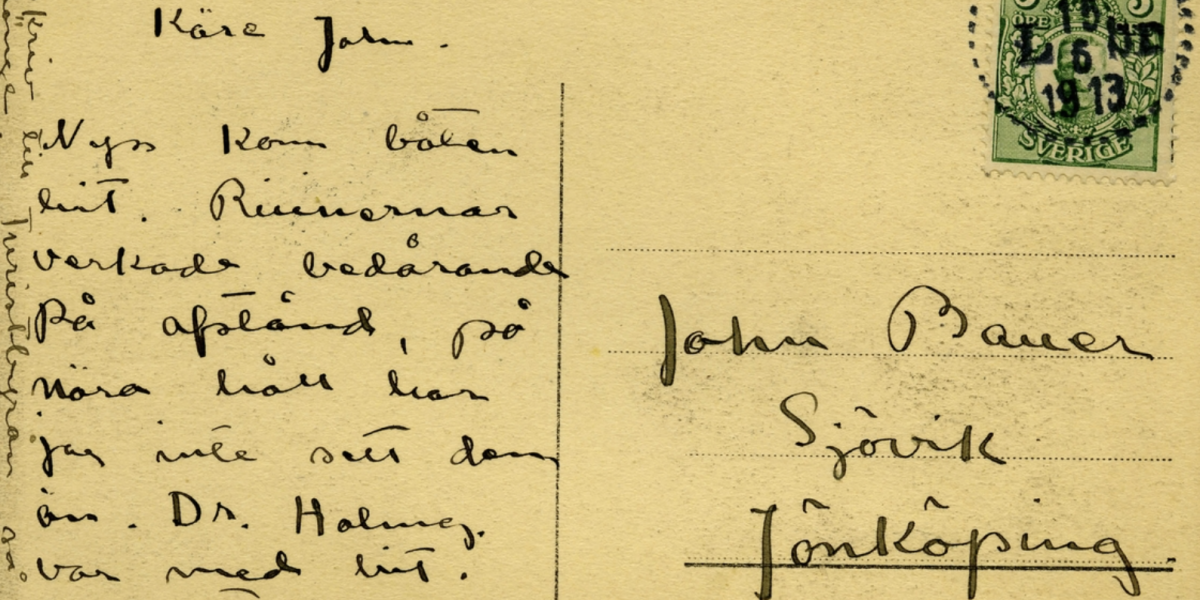 Käre John.
Nyss kom båten
hit. Ruinerna
verkade bedårande
på afstånd, på
nära håll har
jag inte sett dem
än. Dr. Holmg.
var med hit.
Skriv till Turistbyrån
så
ÖRE
5
6
1913
SVERIGE
John Bauer
Sjövik
Jönköping